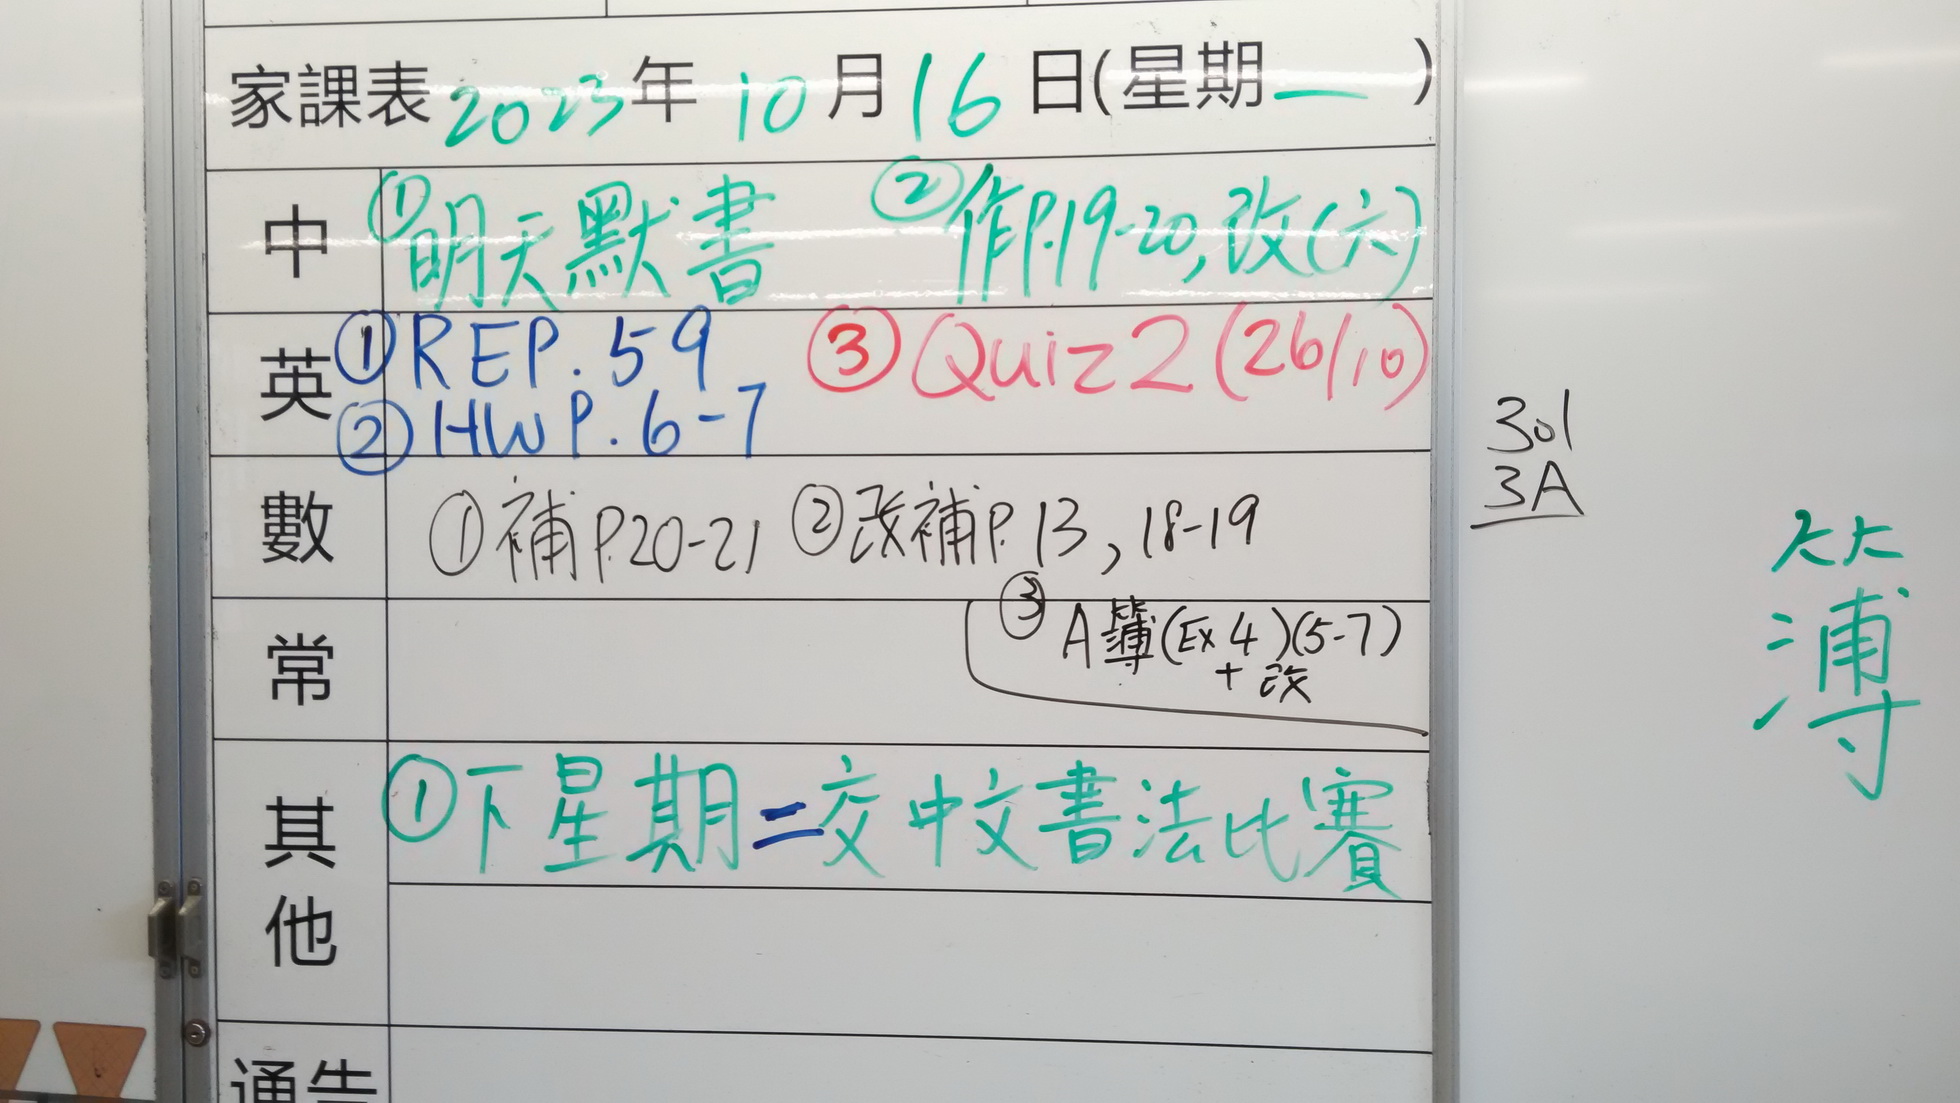 家課表 2023年 10月 16日(星期一)
中 ①明天默書 ②作P.19-20,改(六)
英 ①REP.59 ③Quiz 2 (26/10)
②HWP.6-7
數 ①補P.20-21 ②改補P.13,18-19
常 ③A簿(Ex 4)(5-7)
+改
其他 ①下星期二交中文書法比賽
通告
301
3A
簿